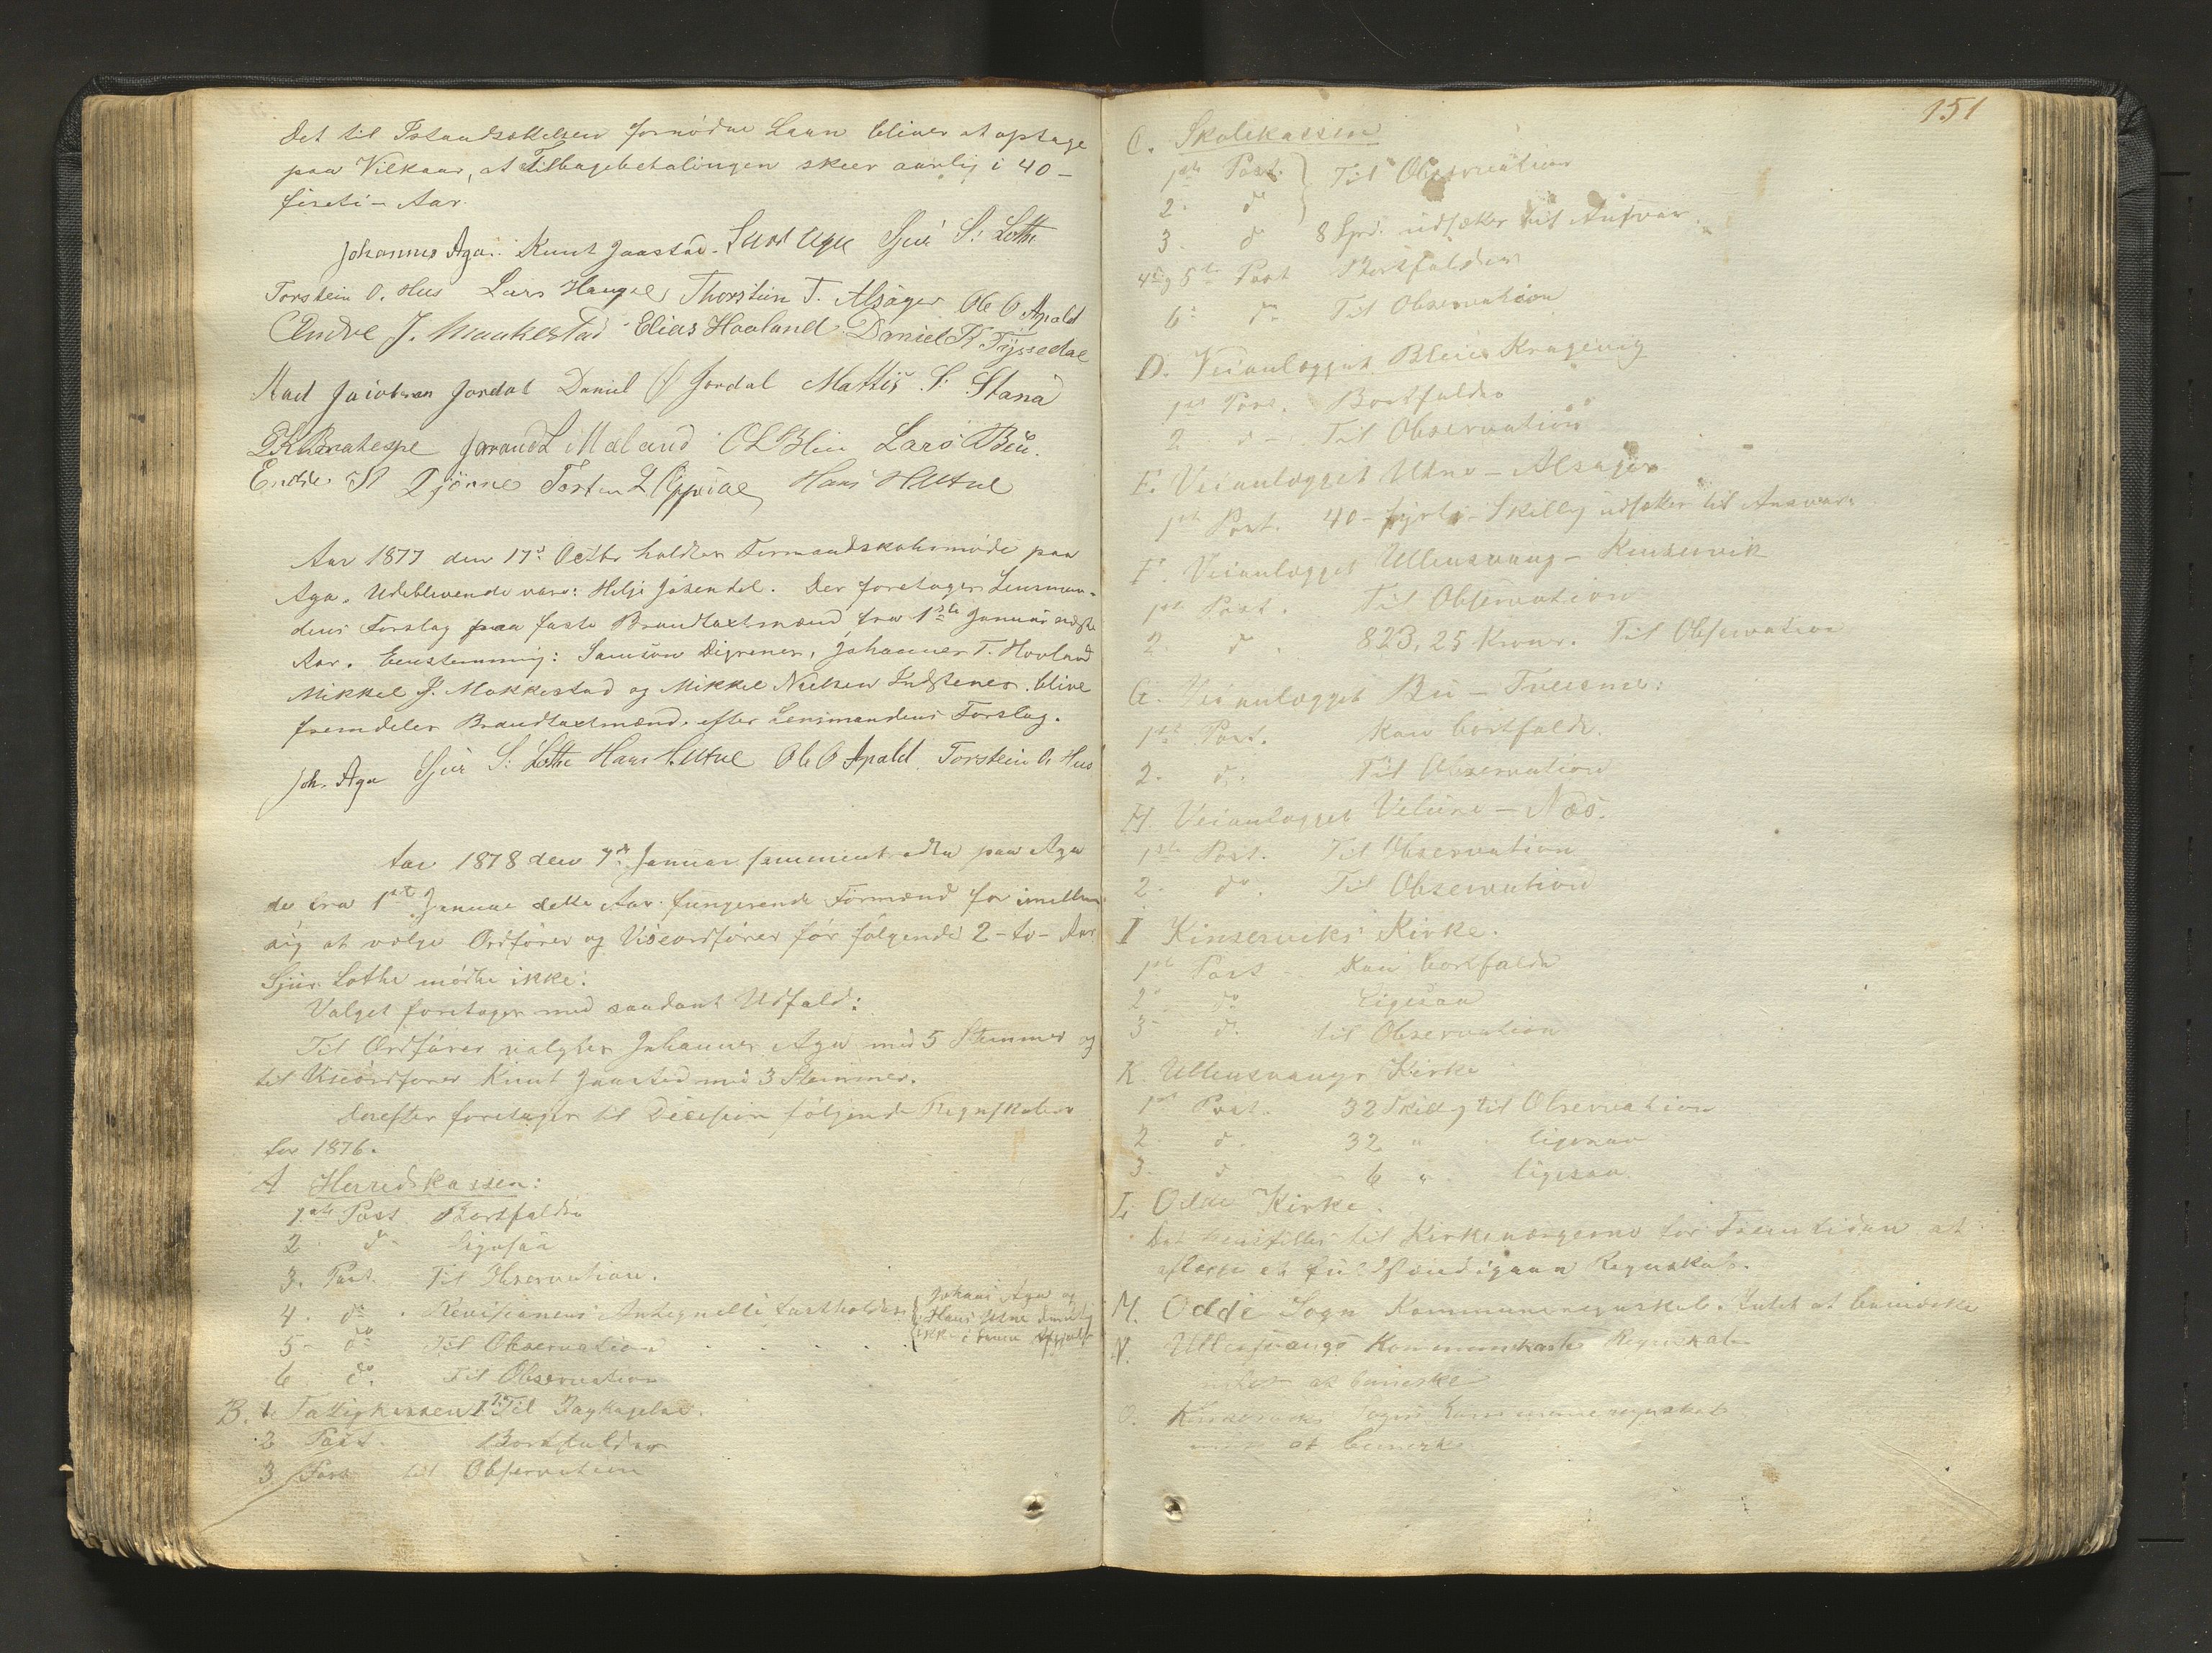 Det til Istandsættelsen fornødne Laan bliver at optage
paa Vilkaar, at Tilbagebetalingen skeer aarlig i 40 –
fireti – Aar.
Johannes Aga. Knut Jaastad. Lars Aga Sjur S. Lothe
Torstein O. Hus Lars Hauge Thorstein T. Alsåger Ole O Apald
Endre J. Maakestad Elias Hovland Daniel Tyssedal
Aad Jacobsen Jordal Daniel Jordal Mattis S. Stana
Jørand L Maland O L Bleie Lars Bleie.
Endre Qjørne Torsten Hans H Utne
Aar 1877 den 17d Octbr holdtes Formandskabsmøde paa
Aga. Udeblivende vare: Helje Jøsendal. Der foretoges Lensman-
dens Forslag paa faste Brandtaxtmænd fra 1ste Januar næste
Aar. Eenstemmig: Samson Digrenes, Johannes T. Hovland
Mikkel J. Makkestad og Mikkel Nielsen Indstenes blive
fremdeles Brandtaxtmænd efter Lensmandens Forslag.
Joh. Aga Sjur S. Lothe Hans H. Utne Ole O Apald Torstein O. Hus
Aar 1878 den 7de Januar sammentraadte paa Aga
de fra 1ste Januar dette Aar fungerende Formænd for imellem
sig at vælge Ordfører og Viceordfører for følgende 2 – to – Aar
Sjur Lothe mødte ikke.
Valget foretoges med saadant Udfald:
Til Ordfører valgtes Johannes Aga med 5 Stemmer og
til Viceordfører Knut Jaastad med 3 Stemmer.
Derefter foretoges til Decision følgende Regnskaber
for 1876.
A Herredskassen:
1ste Post Bortfalder
2 do Ligesaa
3. Post. Til Observation.
4. do. Revisionens Antegnelse fastholdes. Johans Aga og
Hans Utne deeltog
ikke i denne Afgjørelse
5 – do Til Observation
6 do. Til Observation
B. Fattigkassen 1. Til
2 Post. Bortfalder
3 Post til Observation
151
C. Skolekassen
1ste Post. Til Observation
2. do
3. do 8 Spd. udsættes til Ansvar.
4 og 5te Post Bortfalder
6. do Til Observation
D. Veianlægget Bleie Kragevig
1ste Post. Bortfalder
2 do Til Observation
E. Veianlægget Utne – Alsager
1ste Post. 40 – fyrti – Skilling udsættes til Ansvar.
F. Veianlægget Ullensvang – Kinservik
1ste Post. Til Observation
2. do. 823,25 Kroner. Til Observation
G. Veianlægget Bu –
1ste Post. Kan bortfalde.
2. do. Til Observation
H. Veianlægget Velure – Næs.
1ste Post. Til Observation
2. do. Til Observation
I Kinserviks Kirke.
1ste Post Kan bortfalde
2 do Ligesaa
3 do. til Observation
K. Ullensvangs Kirke
1ste Post. 32 Skilling til Observation
2. do. 32 " ligesaa
3. do 6 " ligesaa.
L. Odde Kirke.
Det til Kirkeværgerne for Fremtiden at
aflægge et fuldstændigere Regnskab.
M. Odde Sogns Kommuneregnskab. Intet at bemærke
N. Ullensvangs Kommunekasses Regnskab
Intet at bemærke
O. Kinserviks Sogns Kommuneregnskab
Intet at bemærke